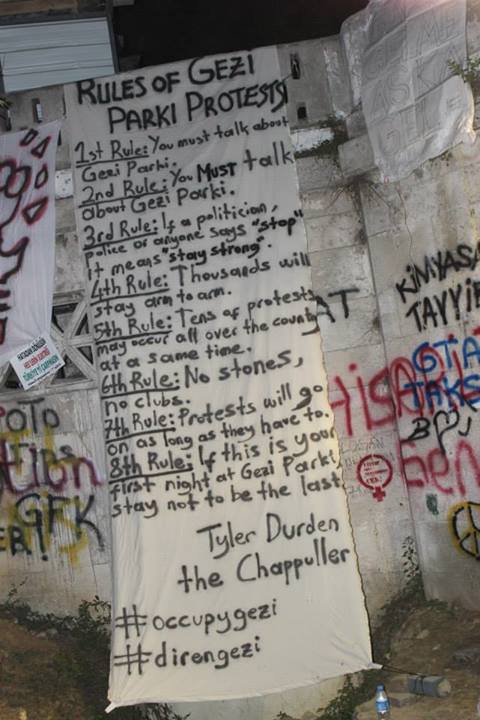 RULES OF GEZI
PARKI PROTESTS
1st Rule: You must talk about
Gezi Parki.
2nd Rule: You MUST talk
about Gezi Parki.
3rd Rule: If a politician,
police or anyone says "stop"
it means "stay strong".
4th Rule: Thousands will
stay arm to arm.
5th Rule: Tens of protests
may occur all over the country
at a same time.
6th Rule: No stones,
no clubs.
7th Rule: Protests will go
on as long as they have to.
8th Rule: If this is your
first night at Gezi Parki,
stay not to be the last
Tyler Durden
the Chappuller
#occupygezi
#direngezi
AT
KİMYASA
TAYYİP
TAKS
GFK